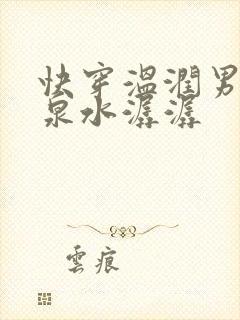 快穿溫潤男
泉水潺潺
雲痕